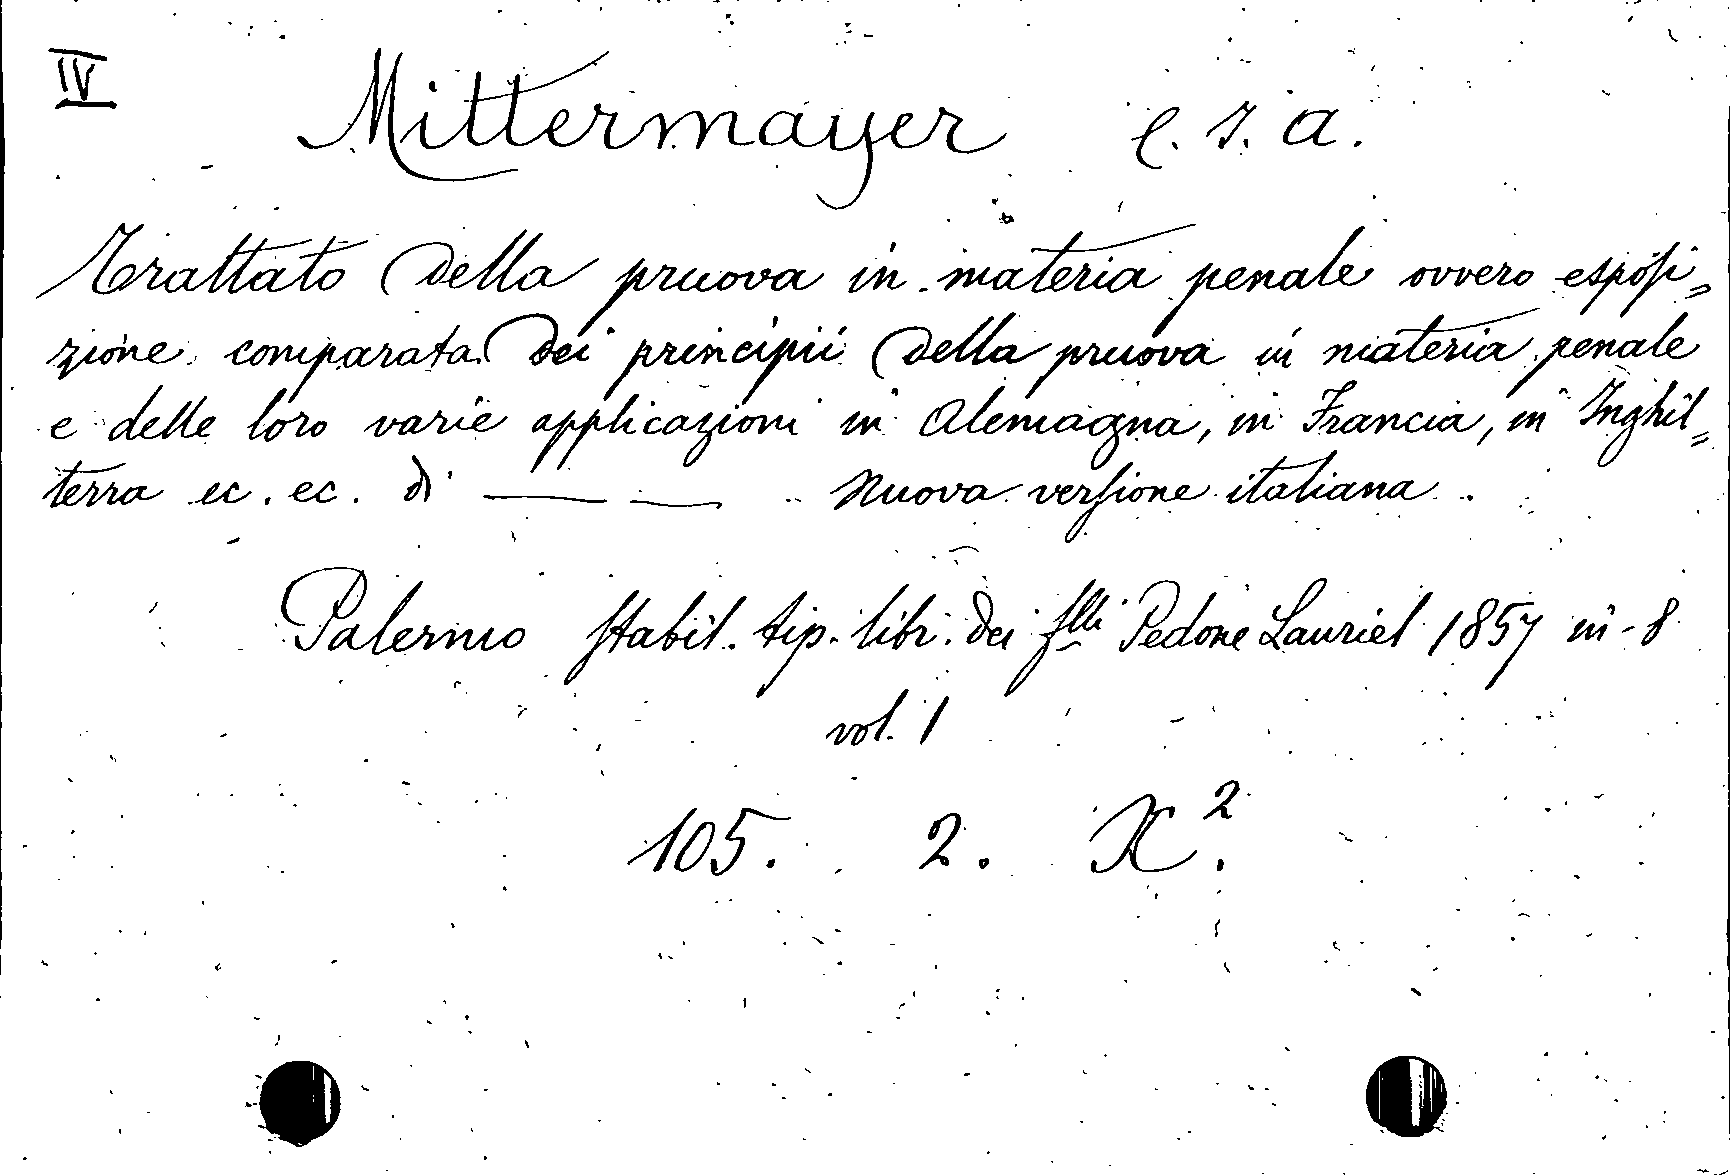 IV
Mittermayer C. I. A.
Trattato della pruova in materia penale ovvero esposi=
zione comparata dei principii della pruova in materia penale
e delle loro varie applicazioni in Alemagna, in Francia, in Inghil=
terra ec. ec. di — — Nuova versione italiana.
Palermo stabil. tip. libr. dei flli Pedone Lauriel 1857 in-8
vol. 1
105. 2. X².